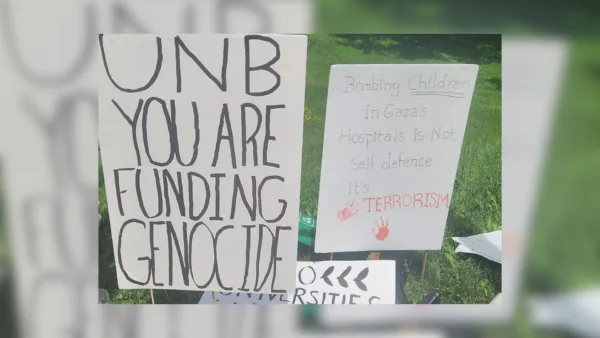 UNB
YOU ARE
FUNDING
GENOCIDE
Bombing Children
in Gazas
Hospitals is Not
Self defence
it's
TERRORISM
UNIVERSITIES